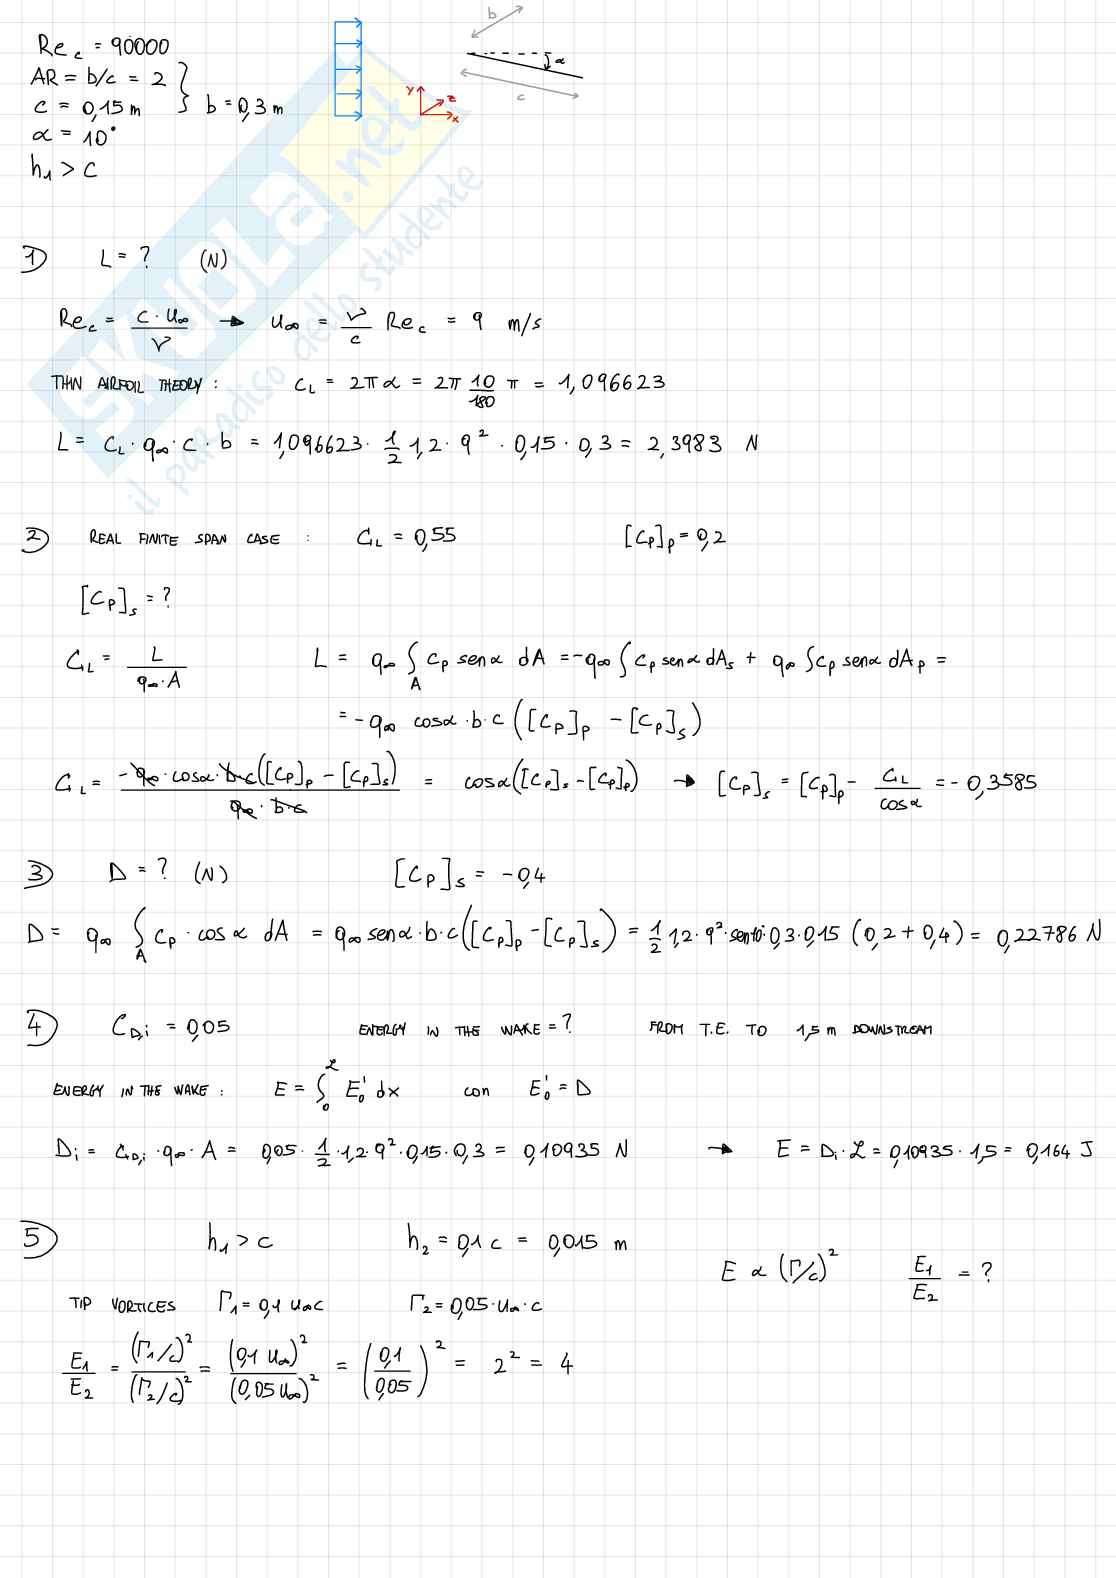 Re_c = 90000
AR = b/c = 2
c = 0,15 m } b = 0,3 m
α = 10°
h₁ > c
b
α
c
y z x
SKUOLA.net
il paradiso dello studente
1) L = ? (N)
Re_c = c · u∞ / ν → u∞ = ν/c Re_c = 9 m/s
THIN AIRFOIL THEORY : C_L = 2π α = 2π 10/180 π = 1,096623
L = C_L · q∞ · c · b = 1,096623 · 1/2 1,2 · 9² · 0,15 · 0,3 = 2,3983 N
2) REAL FINITE SPAN CASE : C_L = 0,55 [C_P]_P = 0,2
[C_P]_s = ?
C_L = L / q∞ · A L = q∞ ∫_A C_P sen α dA = -q∞ ∫ C_P sen α dA_s + q∞ ∫ C_P sen α dA_P =
= - q∞ cos α · b · c ([C_P]_P - [C_P]_s)
C_L = -q∞ · cos α · b·c ([C_P]_P - [C_P]_s) / q∞ · b·c = cos α ([C_P]_s - [C_P]_P) → [C_P]_s = [C_P]_P - C_L / cos α = - 0,3585
3) D = ? (N) [C_P]_s = - 0,4
D = q∞ ∫_A C_P · cos α dA = q∞ sen α · b · c ([C_P]_P - [C_P]_s) = 1/2 1,2 · 9² · sen 10 · 0,3 · 0,15 (0,2 + 0,4) = 0,22786 N
4) C_D,i = 0,05 ENERGY IN THE WAKE = ? FROM T.E. TO 1,5 m DOWNSTREAM
ENERGY IN THE WAKE : E = ∫₀^ℒ E₀' dx con E₀' = D
D_i = C_D,i · q∞ · A = 0,05 · 1/2 · 1,2 · 9² · 0,15 · 0,3 = 0,10935 N → E = D_i · ℒ = 0,10935 · 1,5 = 0,164 J
5) h₁ > c h₂ = 0,1 c = 0,015 m
E ∝ (Γ/c)² E₁/E₂ = ?
TIP VORTICES Γ₁ = 0,1 u∞ c Γ₂ = 0,05 · u∞ · c
E₁/E₂ = (Γ₁/c)² / (Γ₂/c)² = (0,1 u∞)² / (0,05 u∞)² = (0,1/0,05)² = 2² = 4